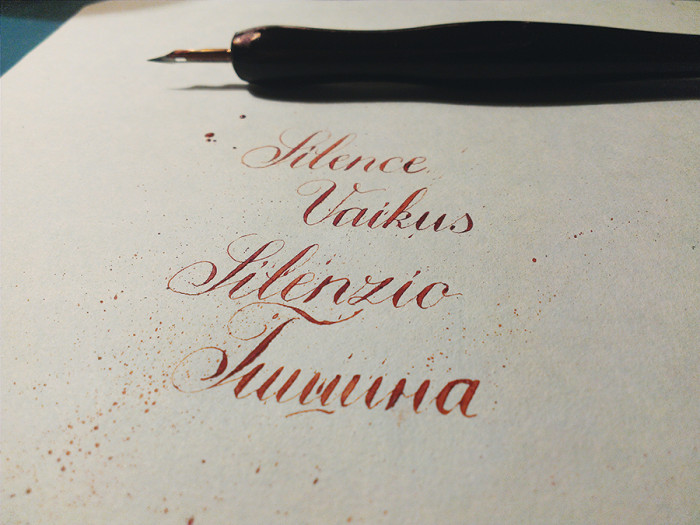 Silence
Vaikus
Silenzio
Тишина